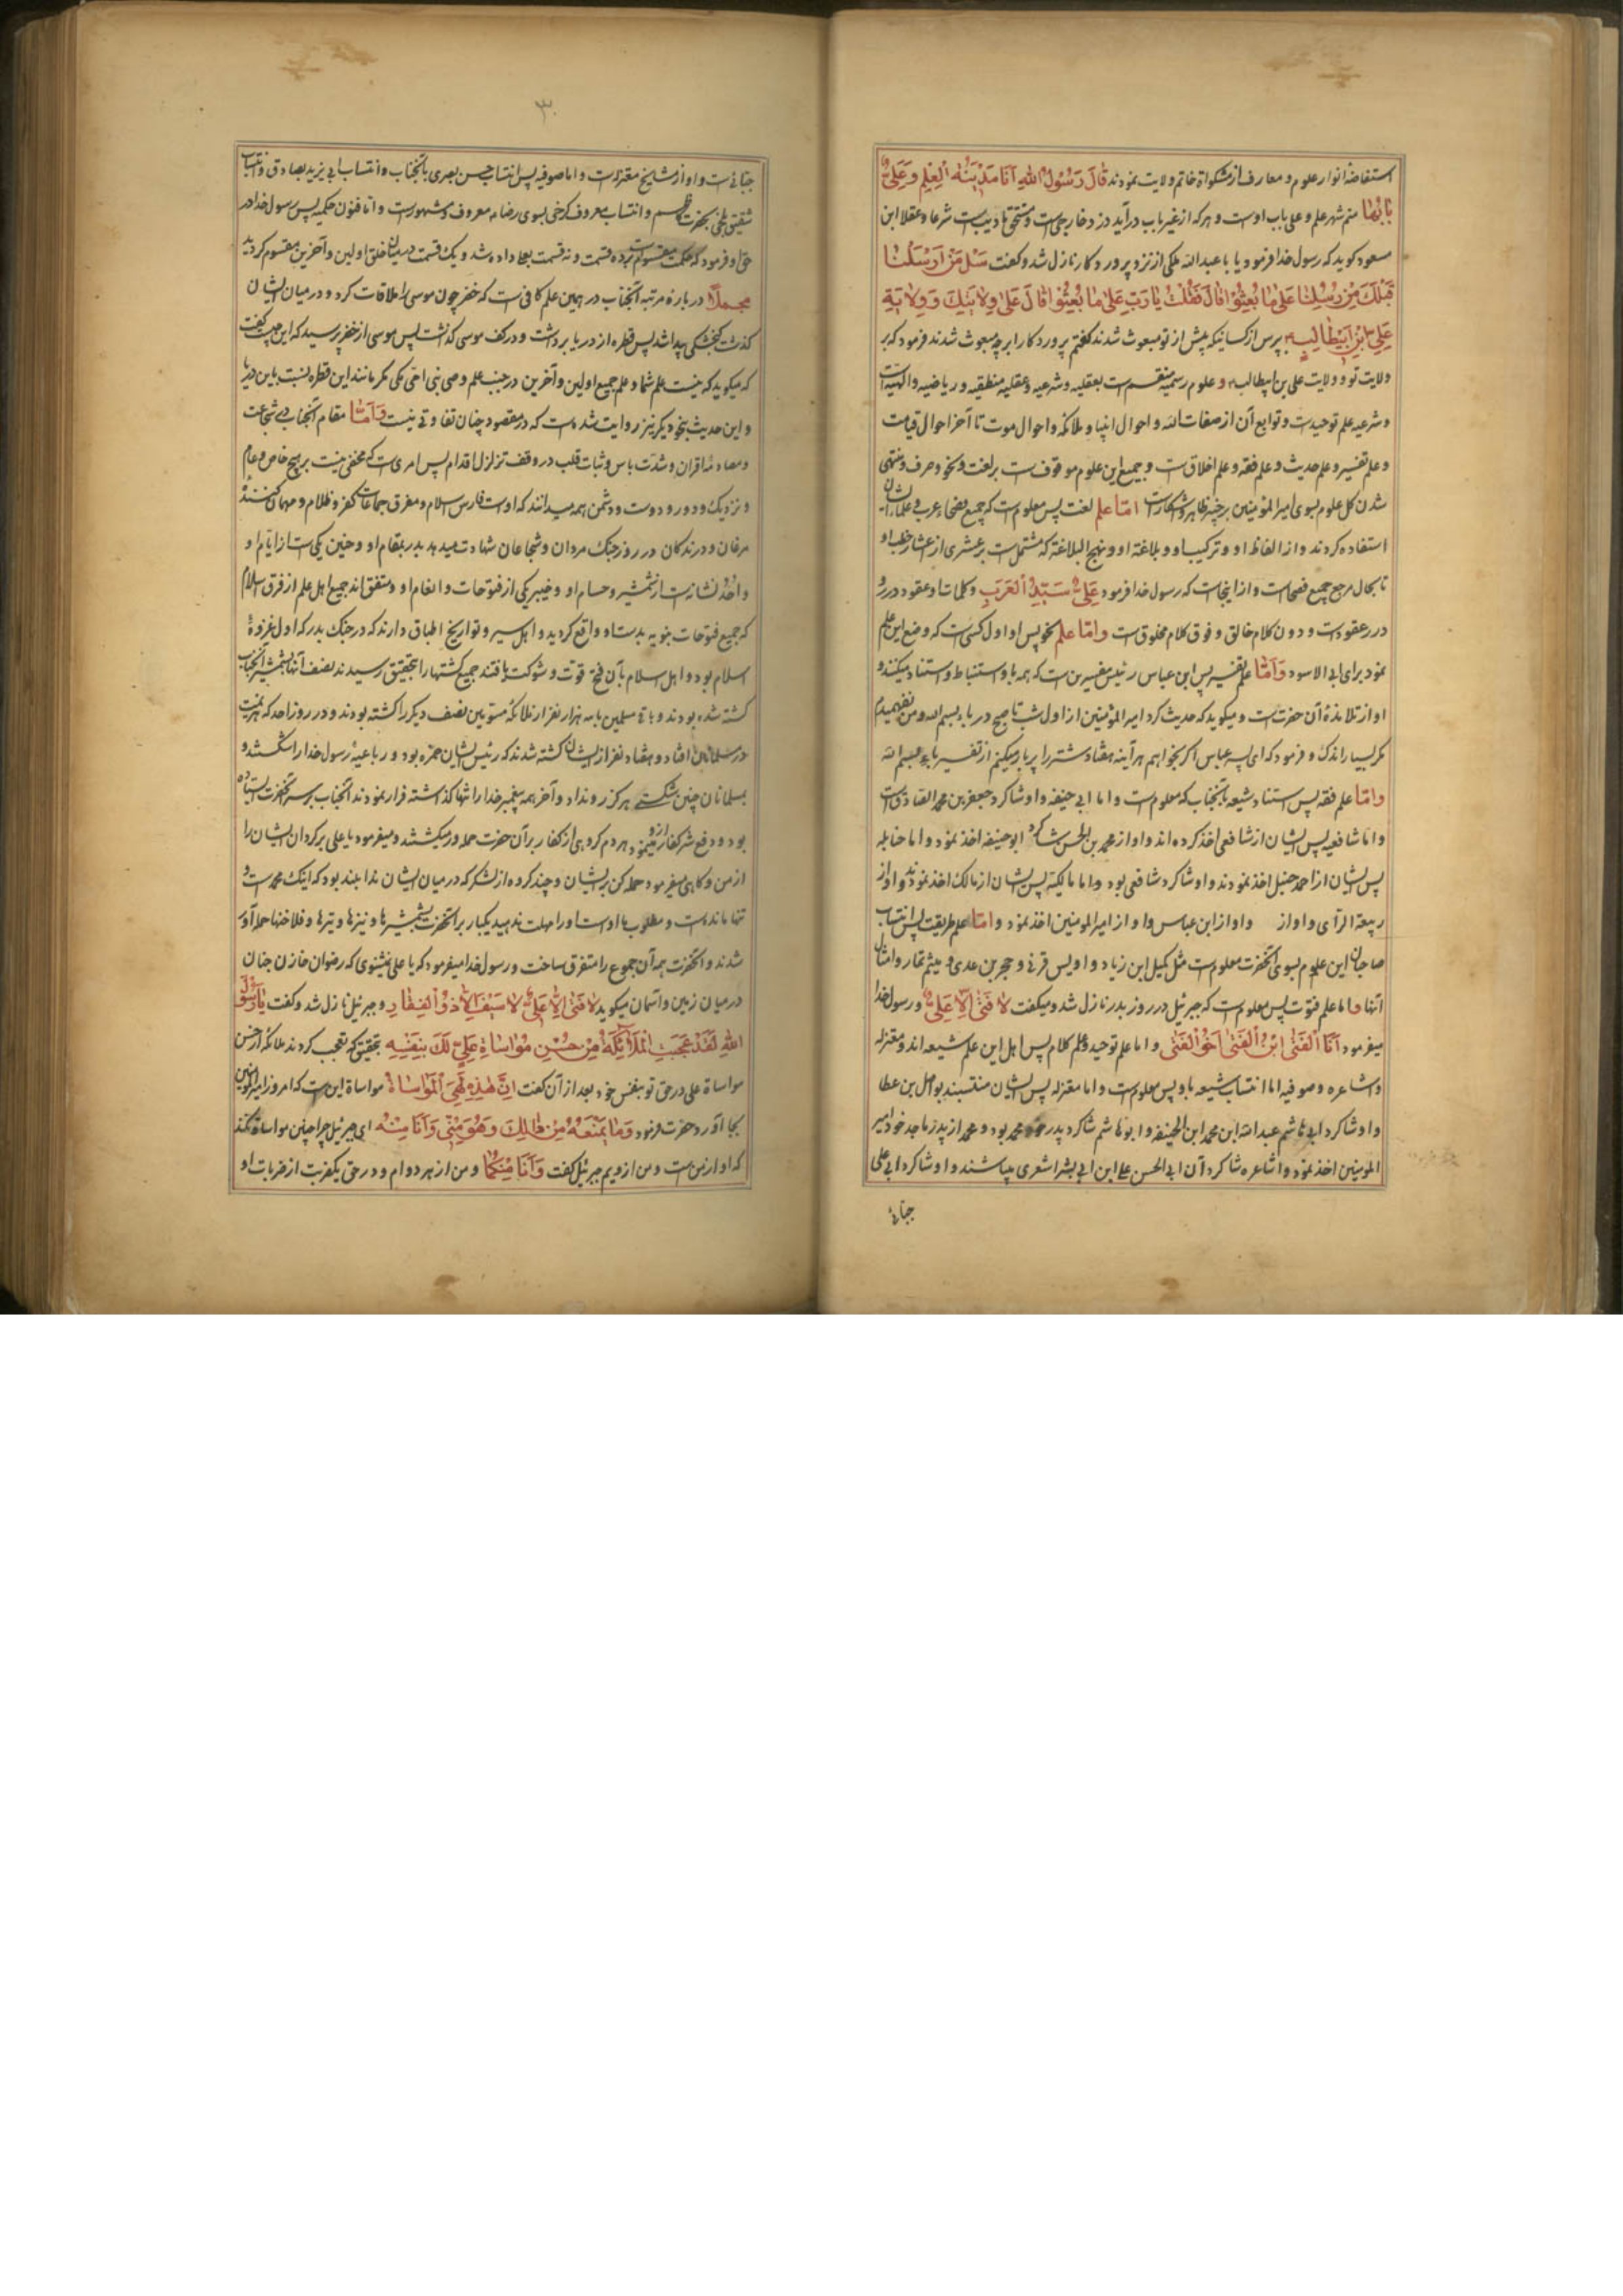 استفاضه انوار علوم و معارف از مشکواة خاتم ولایت نمودند قَالَ رَسُولُ اللهِ اَنَا مَدْیَنَةُ الْعِلْمِ وَ عَلِیٌّ
بَابُهَا منم شهر علم و علی باب اوست و هر که از غیر باب درآید دزد خارجی است و مستحق تادیب است شرعا و عقلا ابن
مسعود کوید که رسول خدا فرمود یا با عبد الله ملکی از نزد پروردکار نازل شد و کفت سَلْ مَنْ اَرْسَلْنَا
قَبْلَکَ مِنْ رُسُلِنَا عَلیٰ مَا بُعِثُوْا قَالَ فَقُلْتُ یَا رَبِّ عَلیٰ مَا بُعِثُوْا قَالَ عَلیٰ وِلَایَتِکَ وَ وِلَایَةِ
عَلِیِّ بْنِ اَبِیْطَالِبٍ بپرس از کسانیکه پیش از تو مبعوث شدند کفتم پروردکارا بر چه مبعوث شدند فرمود که بر
ولایت تو و ولایت علی بن ابیطالب و علوم رسمیه منقسم است بعقلیه و شرعیه و عقلیه منطقیه و ریاضیه و الهیه است
و شرعیه علم توحید است و توابع آن از صفات الله و احوال انبیا و ملائکه و احوال موت تا آخر احوال قیامت
و علم تفسیر و علم حدیث و علم فقه و علم اخلاق است و جمیع این علوم موقوف است بر لغت و نحو و صرف و منتهی
شدن کل علوم بسوی امیر المؤمنین بر چیز ظاهر و آشکار است امّا علم لغت پس معلوم است که جمیع فصحاء عرب و علمای ایشان
استفاده کردند و از الفاظ او و ترکیب او و بلاغة او و نهج البلاغة که مشتمل است بر عشری از اعشار خطب او
تا بحال مرجع جمیع فصحا است و از اینجاست که رسول خدا فرمود عَلِیٌّ سَیِّدُ الْعَرَبِ و کلمات او عقود درر و
درر عقود است و دون کلام خالق و فوق کلام مخلوق است و امّا علم نحو پس او اول کسی است که وضع این علم
نمود برای ابی الاسود وَ اَمَّا علم تفسیر پس ابن عباس رئیس مفسرین است که همه باو استنباط و استناد میکنند و
او از تلامذهٔ آن حضرت است و میکوید که حدیث کرد امیر المؤمنین از اول شب تا صبح در باء بسم الله و من نفهمیدم
مکر بسیار اندک و فرمود که ای پسر عباس اکر بخواهم هر آینه هفتاد شتر را پر بار میکنم از تفسیر باء بسم الله
و امّا علم فقه پس استناد شیعه بآنجناب که معلوم است و اما ابی حنیفه و او شاکرد جعفر بن محمد الصادق است
و اما شافعیه پس ایشان از شافعی اخذ کرده اند و او از محمد بن الحسن شاکرد ابو حنیفه اخذ نمود و اما حنابله
پس ایشان از احمد حنبل اخذ نمودند و او شاکرد شافعی بود و اما مالکیه پس ایشان از مالک اخذ نمودند و او از
ربیعة الرأی و او از و او از ابن عباس و او از امیر المومنین اخذ نمود و امّا علم طریقت پس انتساب
صاحبان این علوم بسوی آنحضرت معلوم است مثل کمیل ابن زیاد و اویس قرنی و حجر بن عدی و میثم تمار و امثال
آنها و اما علم فتوت پس معلوم است که جبرئیل در روز بدر نازل شد و میکفت لَا فَتیٰ اِلَّا عَلِیٌّ و رسول خدا
میفرمود اَنَا الْفَتیٰ اِبْنُ الْفَتیٰ اَخُو الْفَتیٰ و اما علم توحید و علم کلام پس اهل این علم شیعه اند و معتزله
و اشاعره و صوفیه اما انتساب شیعه باو پس معلوم است و اما معتزله پس ایشان منتسبند بواصل بن عطا
و او شاکرد ابی هاشم عبد الله ابن محمد ابن الحنیفه و ابو هاشم شاکرد پدر خود محمد بود و محمد از پدر ماجد خود امیر
المومنین اخذ نمود و اشاعره شاکردان ابی الحسن علی ابن ابی بشر اشعری میباشند و او شاکرد ابی علی
جبائی
۳۰
جبائی است و او از مشایخ معتزله است و اما صوفیه پس انتساب حسن بصری بآنجناب و انتساب ابی یزید بصادق و انتساب
شقیق بلخی بحضرت کاظم و انتساب معروف کرخی بسوی رضا معروف و مشهور است و اما فنون حکمیه پس رسول خدا در
حق او فرمود که حکمت مقسوم است بده قسمت و نه قسمت بعلی داده شد و یک قسمت در میان خلق اولین و آخرین مقسوم کردید
مجملاً در بارهٔ مرتبه آنجناب در همین علم کافی است که خضر چون موسی را ملاقات کرد و در میان ایشان
کذشت کنجشکی پیدا شد پس قطره از دریا برداشت و در کف موسی کذاشت پس موسی از خضر پرسید که این چیست کفت
که میکوید که نیست علم شما و علم جمیع اولین و آخرین در جنب علم وصی نبی امی مکی مکر مانند این قطره نسبت باین دریا
و این حدیث بنحو دیکر نیز روایت شده است که در مقصود چنان تفاوتی نیست وَ اَمَّا مقام آنجناب در شجاعت
و مصادمهٔ اقران و شدّت باس و ثبات قلب در موقف تزلزل اقدام پس امری است که مخفی نیست بر هیچ خاص و عام
و نزدیک و دور و دوست و دشمن همه میدانند که اوست فارس اسلام و مفرق جماعات کفر و ظلام و مهمانی کنندهٔ
مرغان و درندکان در روز جنک مردان و شجاعان شهادت میدهد بدر بمقام او و حنین یکی است از ایام او
و اُحُد نشانه است از شمشیر و حسام او و خیبر یکی از فتوحات و انعام او و متفق اند جمیع اهل علم از فرق اسلام
که جمیع فتوحات نبویه بدست او واقع کردید و اهل سیر و تواریخ اطباق دارند که در جنک بدر که اول غزوهٔ
اسلام بود و اهل اسلام بآن فتح قوت و شوکت یافتند جمیع کشتها را بتحقیق رسیدند نصف آنها بشمشیر آنجناب
کشته شده بودند و باقی مسلمین با سه هزار نفر از ملائکه مسومین نصف دیکر را کشته بودند و در روز احد که هزیمت
در مسلمانان افتاد و هفتاد نفر از ایشان کشته شدند که رئیس ایشان حمزه بود و رباعیهٔ رسول خدا را شکستند و
بمسلمانان چنین شکستی هرکز رو نداد و آخر همه پیغمبر خدا را تنها کذاشته فرار نمودند آنجناب بر سر آنحضرت ایستاده
بود و دفع شر کفار از او مینمود و هر دم کروهی از کفار بر آن حضرت حمله ور میکشتند و میفرمود یا علی برکردان ایشان را
از من و کاهی میفرمود حمله کن بر ایشان و چند کرده از لشکر که در میان ایشان ندا بلند بود که اینک محمد است و
تنها مانده است و مطلوب ما اوست او را مهلت ندهید یکبار بر آنحضرت بشمشیرها و نیزها و تیرها و فلاخنها حمله آور
شدند و آنحضرت همه آن جموع را متفرق ساخت و رسول خدا میفرمود که یا علی نمیشنوی که رضوان خازن جنان
در میان زمین و آسمان میکوید لَا فَتیٰ اِلَّا عَلِیٌّ لَا سَیْفَ اِلَّا ذُوْ الْفِقَارِ و جبرئیل نازل شد و کفت یَا رَسُوْلَ
اللهِ لَقَدْ عَجِبَتِ الْمَلَائِکَةُ مِنْ حُسْنِ مُوَاسَاةِ عَلِیٍّ لَکَ بِنَفْسِهِ بتحقیق که تعجب کردند ملائکه از حسن
مواساة علی در حق تو بنفس خود بعد از آن کفت اِنَّ هٰذِهِ لَهِیَ الْمُوَاسَاةُ مواساة این است که امروز امیر المؤمنین
بجا آورد حضرت فرمود وَ مَا یَمْنَعُهُ مِنْ ذٰلِکَ وَ هُوَ مِنِّیْ وَ اَنَا مِنْهُ ای جبرئیل چرا چنین مواساة نکند
که او از من است و من از ویم جبرئیل کفت وَ اَنَا مِنْکُمَا و من از هر دو ام و در حق یکضربت از ضربات او